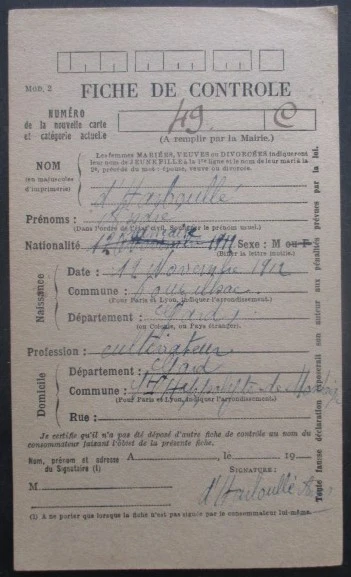 MOD. 2
FICHE DE CONTROLE
NUMÉRO
de la nouvelle carte
et catégorie actuelle
49 C
(A remplir par la Mairie.)
NOM
(en majuscules
d'imprimerie)
Les femmes MARIÉES, VEUVES ou DIVORCÉES indiqueront
leur nom de JEUNE FILLE à la 1re ligne et le nom de leur mari à la
2e, précédé du mot : épouse, veuve ou divorcée.
Prénoms :
(Dans l'ordre de l'état civil. Souligner le prénom usuel.)
Nationalité Sexe : M ou F
(Biffer la lettre inutile.)
Naissance
Date : 12 Novembre 1912
Commune :
(Pour Paris et Lyon, indiquer l'arrondissement.)
Département : Gard
(ou Colonie, ou Pays étranger).
Profession : cultivateur
Domicile
Département : Gard
Commune : St Hippolyte de
(Pour Paris et Lyon, indiquer l'arrondissement.)
Rue :
Je certifie qu'il n'a pas été déposé d'autre fiche de contrôle au nom du
consommateur faisant l'objet de la présente fiche.
Nom, prénom et adresse
du Signataire (1)
A , le 19
SIGNATURE :
M
(1) A ne porter que lorsque la fiche n'est pas signée par le consommateur lui-même.
Toute fausse déclaration exposerait son auteur aux pénalités prévues par la loi.